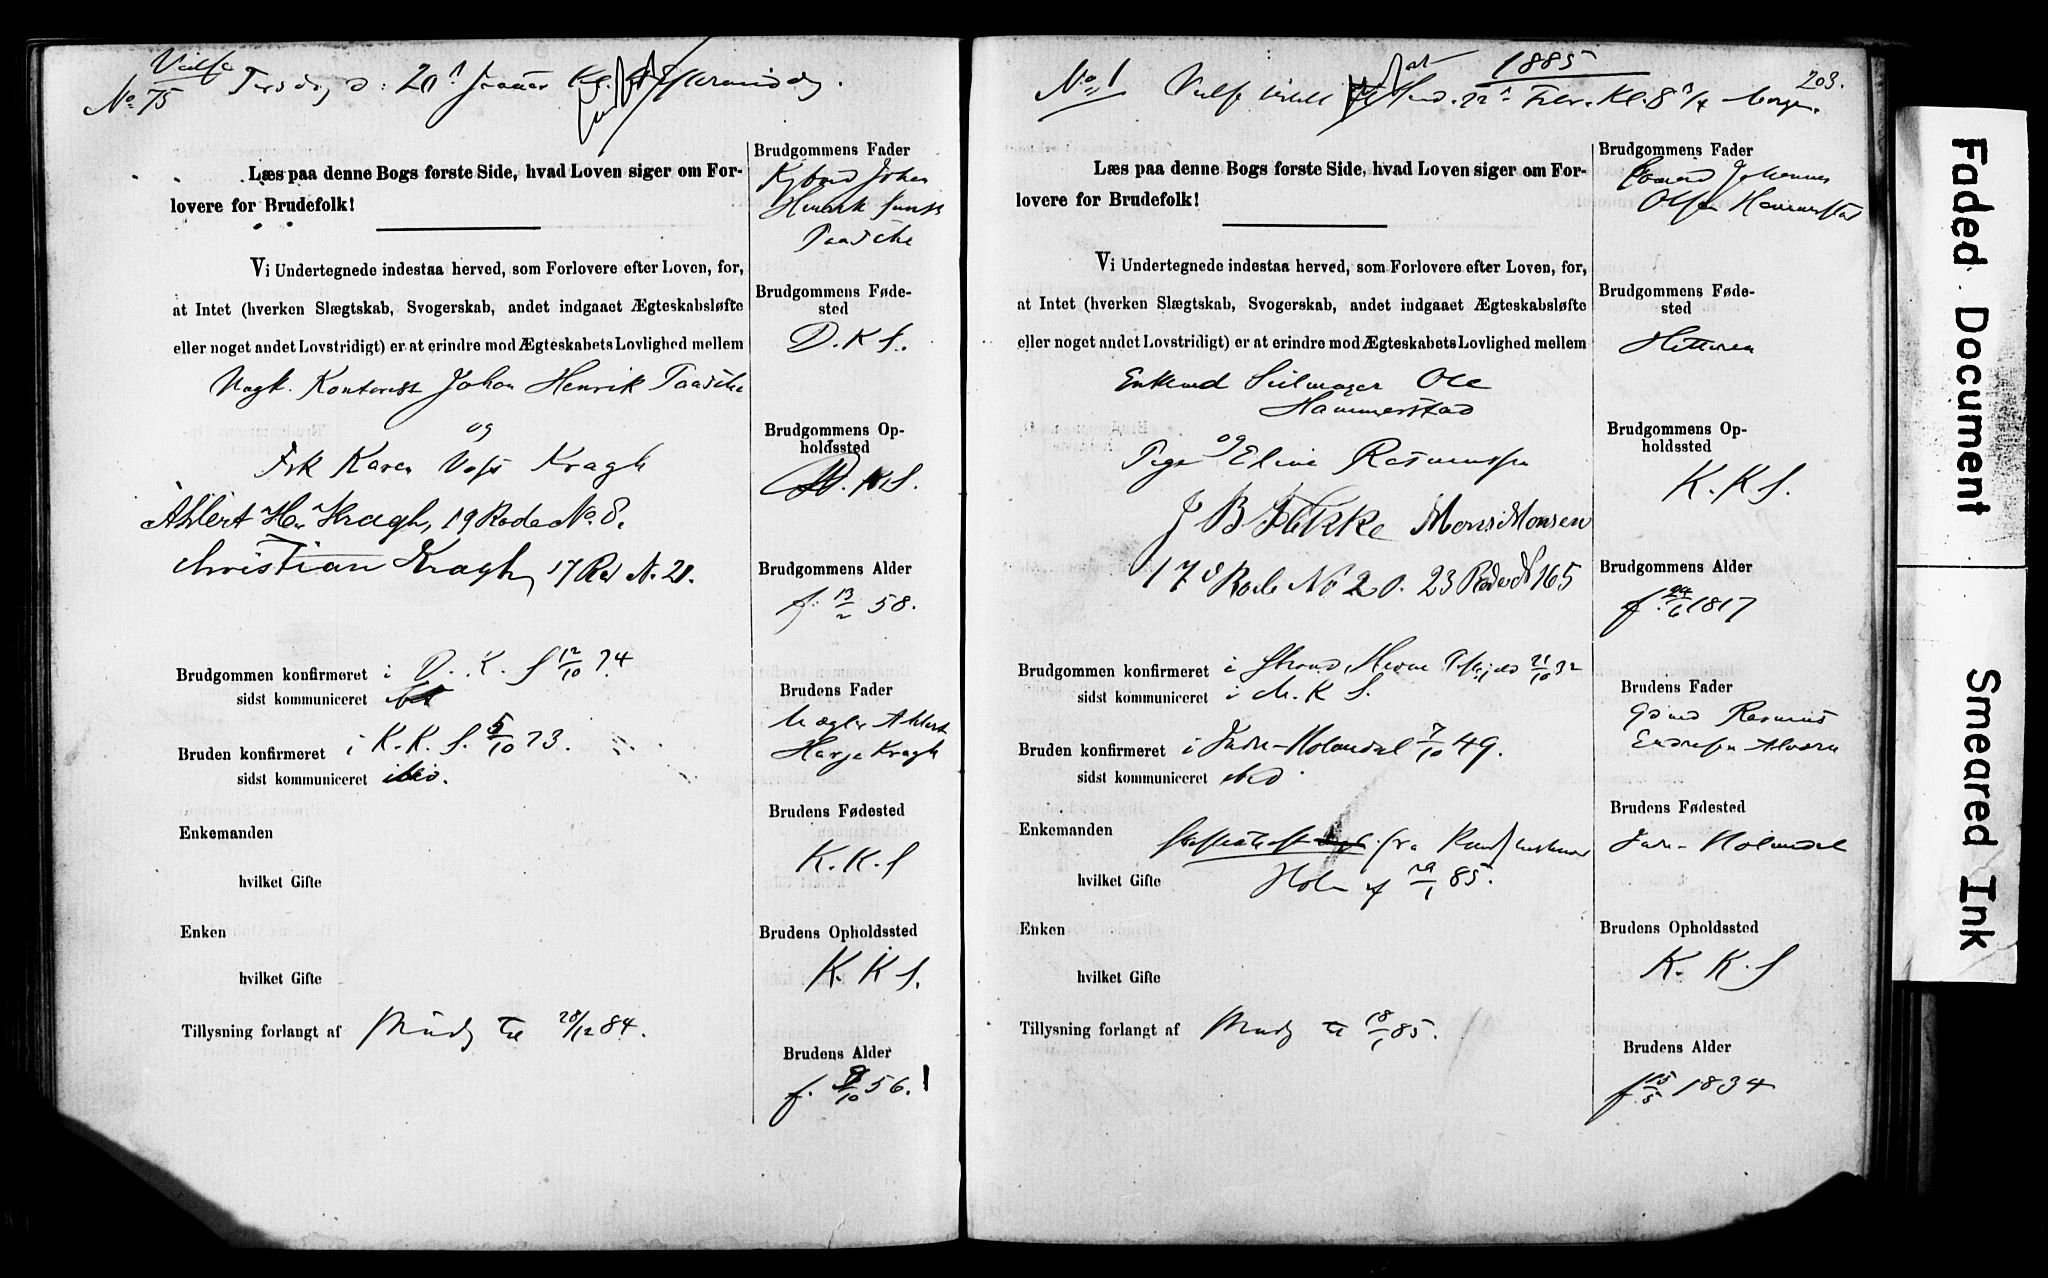 Vielse
No 75 Tirsdag d: 20 Januar Kl. Eftermiddag.
Læs paa denne Bogs første Side, hvad Loven siger om For-
lovere for Brudefolk!
Vi Undertegnede indestaa herved, som Forlovere efter Loven, for,
at Intet (hverken Slægtskab, Svogerskab, andet indgaaet Ægteskabsløfte
eller noget andet Lovstridigt) er at erindre mod Ægteskabets Lovlighed mellem
Ungk. Kontorist Johan Henrik Taasche
og
Frk Karen Voss Kragh
Ahlert H. Kragh, 19 Rode No. 8.
Christian Kragh, 17 Rod N. 21.
Brudgommen konfirmeret i D. K. S 12/10 74
sidst kommuniceret
Bruden konfirmeret i K. K. S. 5/10 73.
sidst kommuniceret ibid.
Enkemanden
hvilket Gifte
Enken
hvilket Gifte
Tillysning forlangt af Brudg til 28/12 84.
Brudgommens Fader
Johan
Henrik
Taasche
BrudgommensFøde-
sted
D. K S.
Brudgommens Op-
holdssted
K S.
Brudgommens Alder
f. 13/2 58.
Brudens Fader
Mægler Ahlert
Kragh
Brudens Fødested
K. K. S
Brudens Opholdssted
K. K S.
Brudens Alder
f. 9/10 56.
1885
203.
No 1 Vielse 22 Febr. Kl. 8 3/4 Morgen.
Læs paa denne Bogs første Side, hvad Loven siger om For-
lovere for Brudefolk!
Vi Undertegnede indestaa herved, som Forlovere efter Loven, for,
at Intet (hverken Slægtskab, Svogerskab, andet indgaaet Ægteskabsløfte
eller noget andet Lovstridigt) er at erindre mod Ægteskabets Lovlighed mellem
Enkemd Seilmager Ole
Hammerstad
og
Pige Eline Rasmussen
J B Fikke Mons Monsen
17 Rode No 20. 23 Rode No 165
Brudgommen konfirmeret i 21/10 32
sidst kommuniceret i M. K S.
Bruden konfirmeret i Indre-Holmedal 7/10 49.
sidst kommuniceret ibid
Enkemanden Skifteattest fra
hvilket Gifte Holm af 29/1 85.
Enken
hvilket Gifte
Tillysning forlangt af Brudg til 18/1 85.
Brudgommens Fader
Johannes
Olsen Hammerstad
Brudgommens Føde-
sted
Hitteren
Brudgommens Op-
holdssted
K. K S.
Brudgommens Alder
f. 24/6 1817
Brudens Fader
Gdmd Rasmus
Endresen
Brudens Fødested
Indre-Holmedal
Brudens Opholdssted
K. K. S
Brudens Alder
f 15/5 1834
Faded Document
Smeared Ink